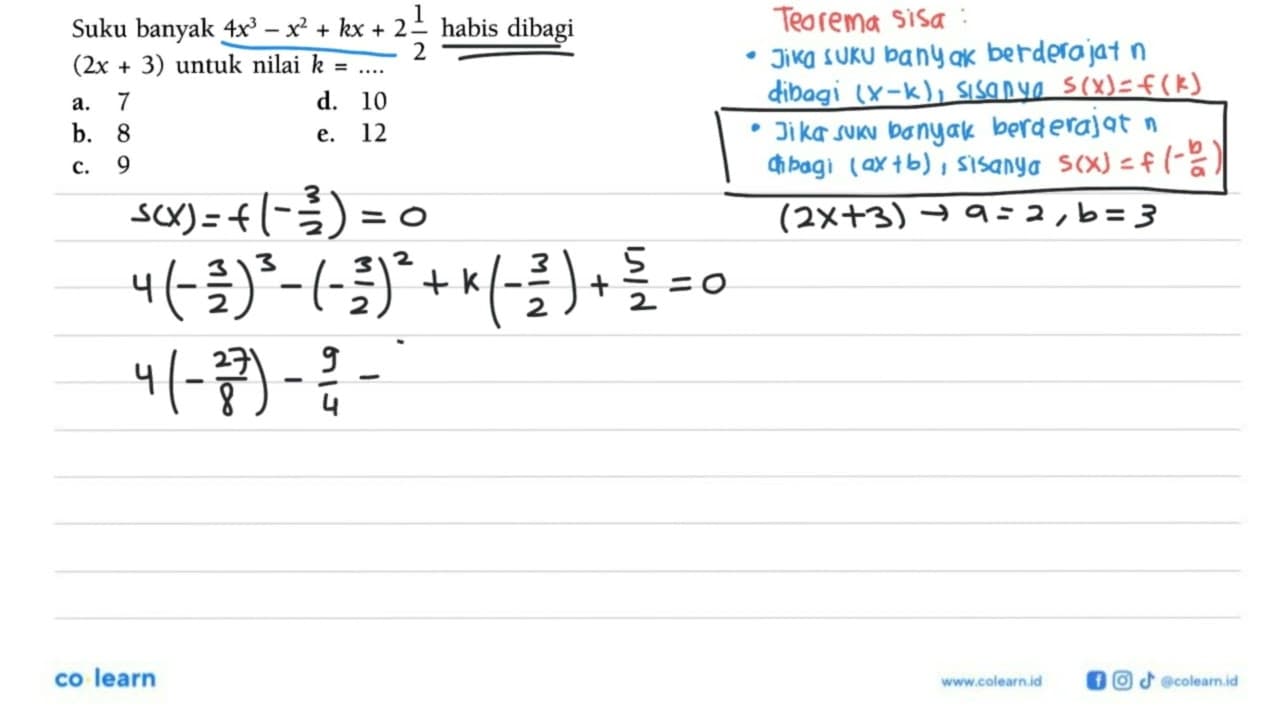 Suku banyak 4x³ – x² + kx + 2 1/2 habis dibagi
(2x + 3) untuk nilai k = ....
a. 7 d. 10
b. 8 e. 12
c. 9
Teorema sisa :
• Jika suku banyak berderajat n
dibagi (x-k), sisanya s(x)=f(k)
• Jika suku banyak berderajat n
dibagi (ax+b), sisanya s(x) = f(-b/a)
(2x+3) → a = 2, b = 3
s(x) = f(-3/2) = 0
4(-3/2)³ - (-3/2)² + k(-3/2) + 5/2 = 0
4(-27/8) - 9/4 -
co learn
www.colearn.id @colearn.id